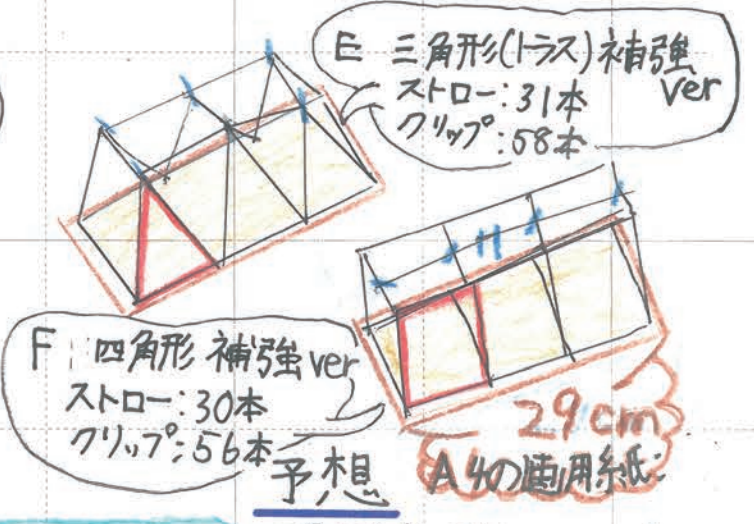 E 三角形(トラス)補強
ver
ストロー:31本
クリップ:58本
F 四角形補強ver
ストロー:30本
クリップ:56本
予想
29cm
A4の画用紙